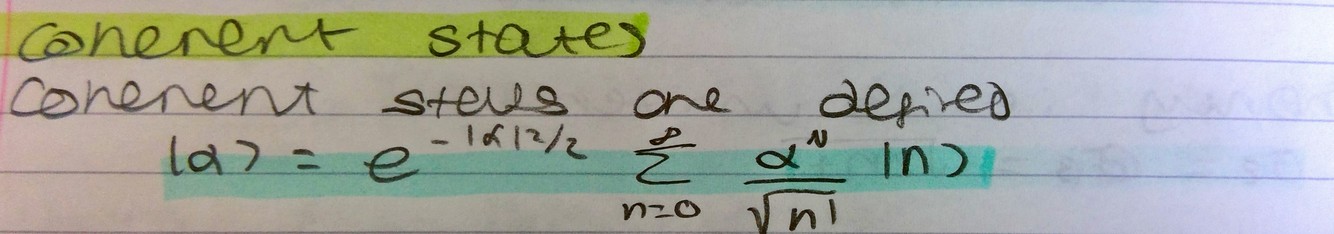 coherent states
coherent states are defined
|α⟩ = e^{-|α|²/2} ∑_{n=0}^{∞} α^n/√n! |n⟩